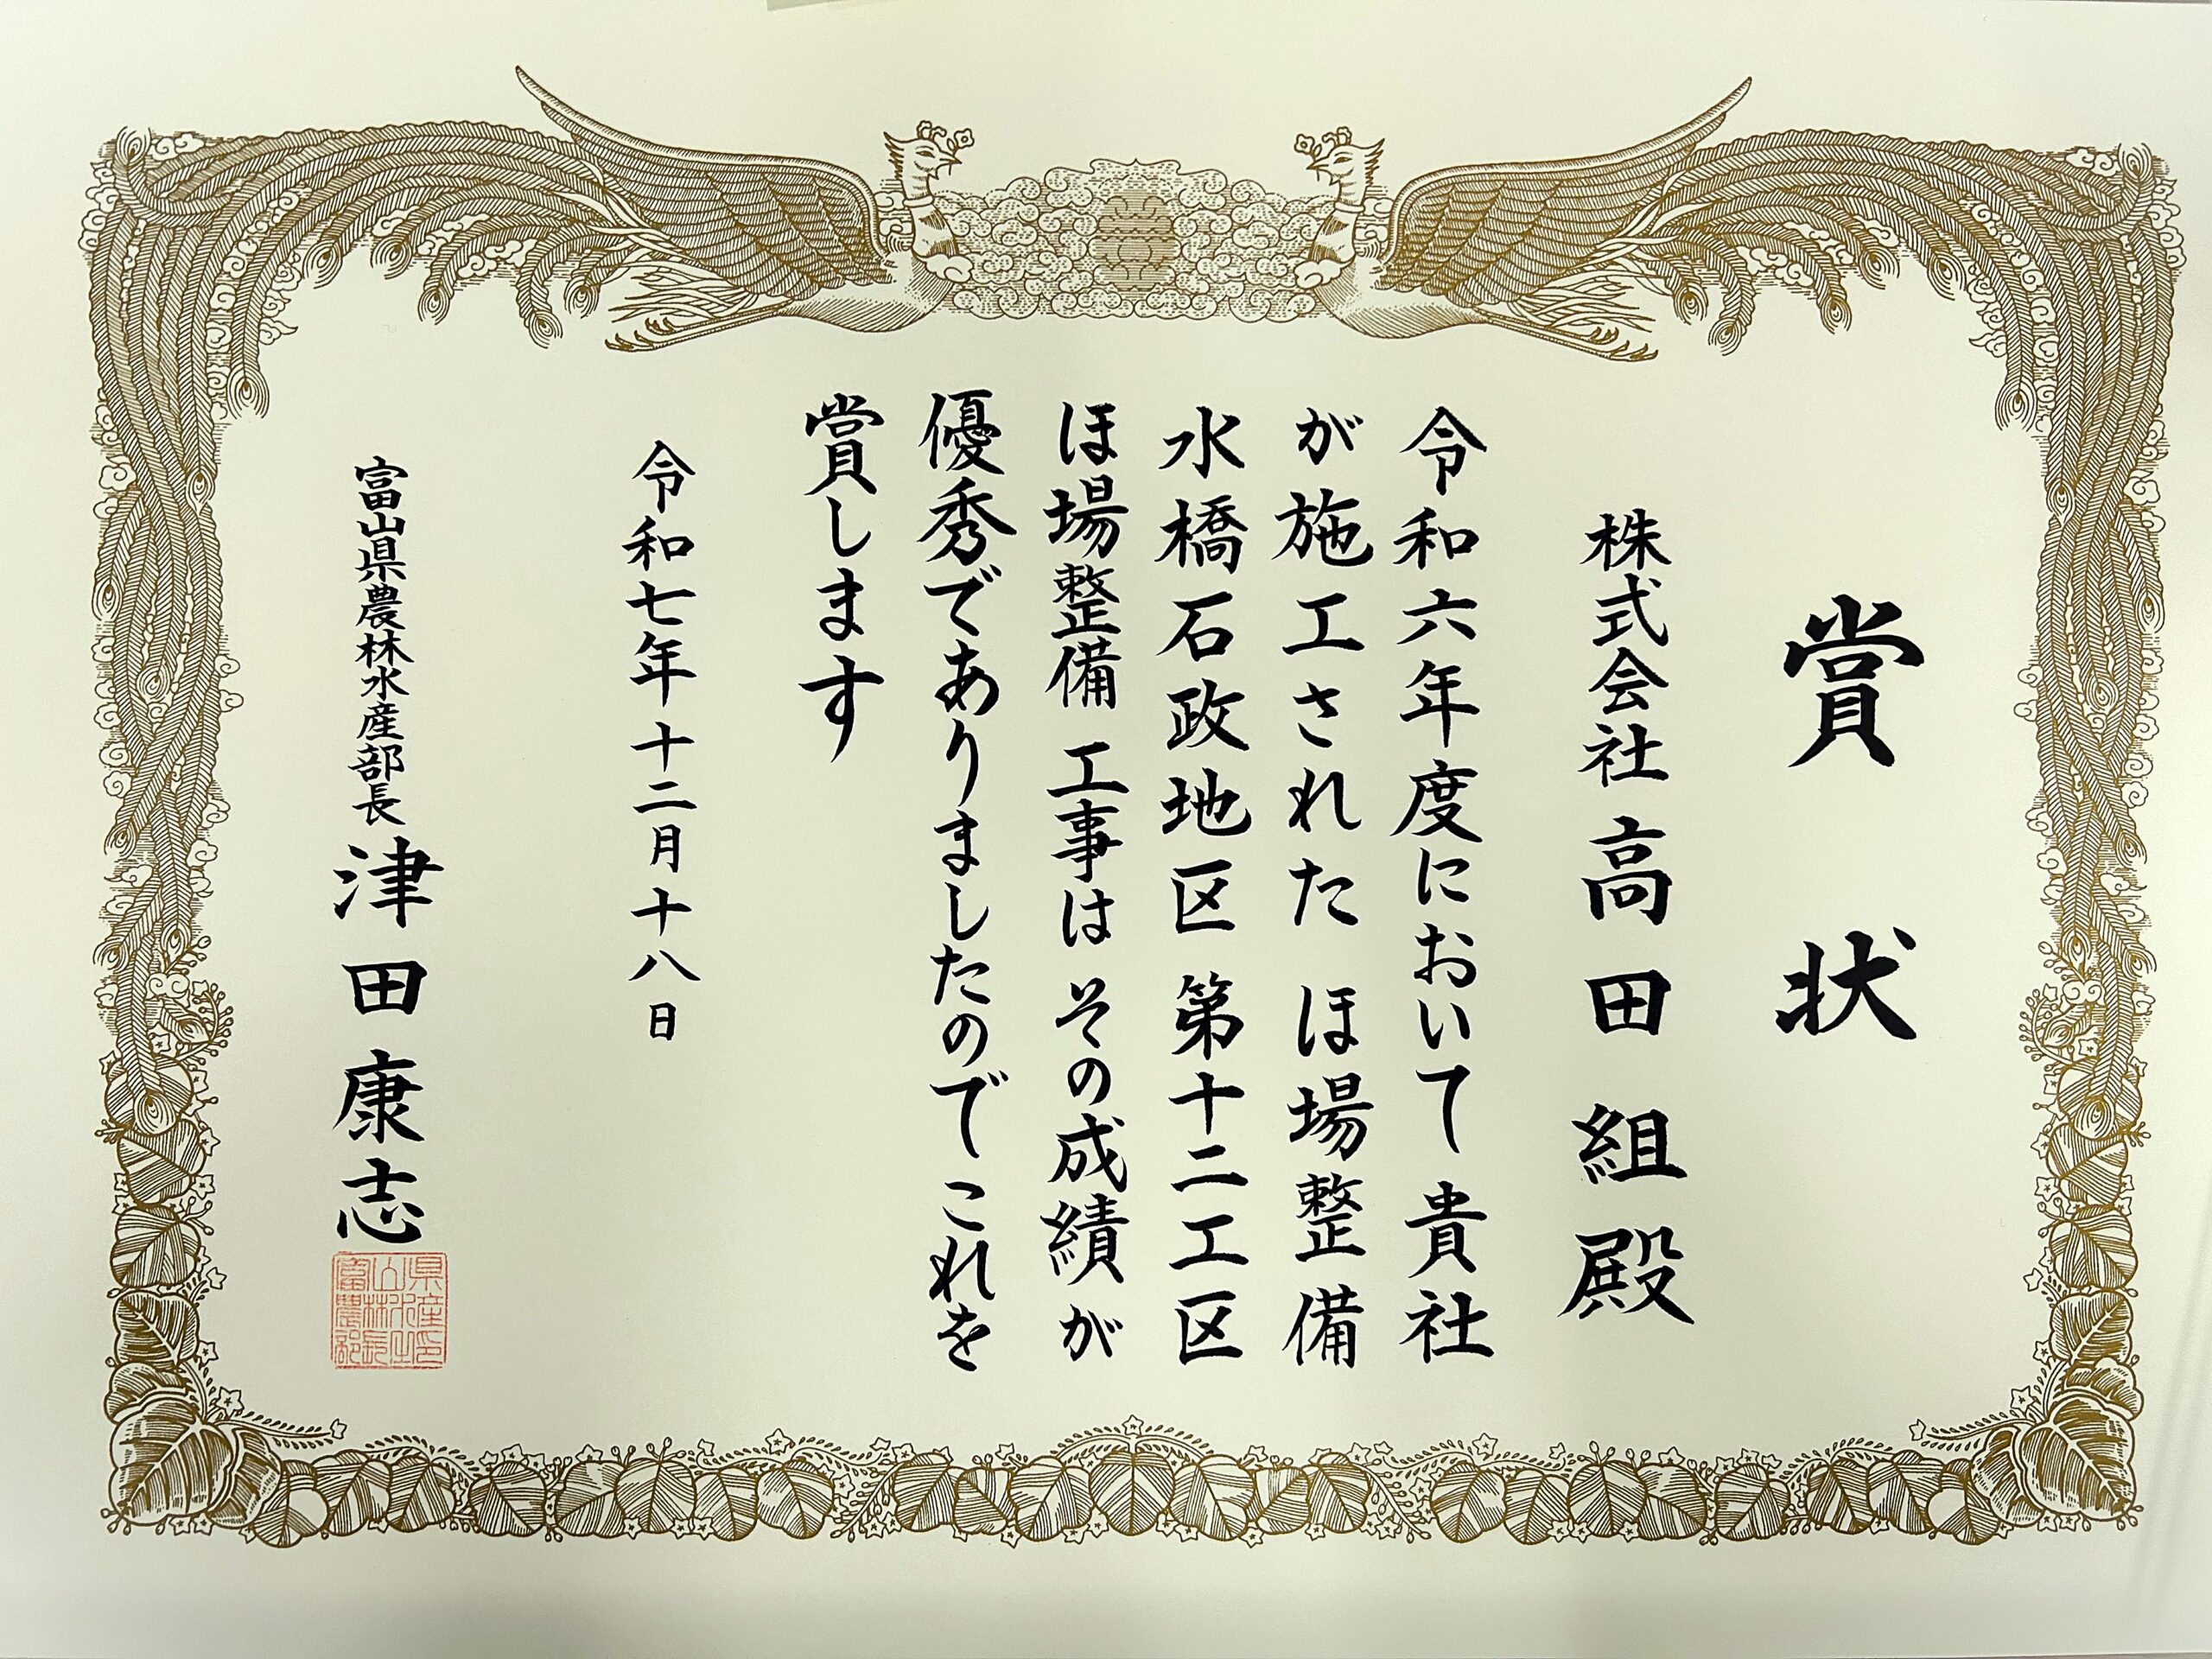 賞状
株式会社高田組殿
令和六年度において貴社
が施工されたほ場整備
水橋石政地区第十二工区
ほ場整備工事はその成績が
優秀でありましたのでこれを
賞します
令和七年十二月十八日
富山県農林水産部長津田康志
富山県農林水産部長之印